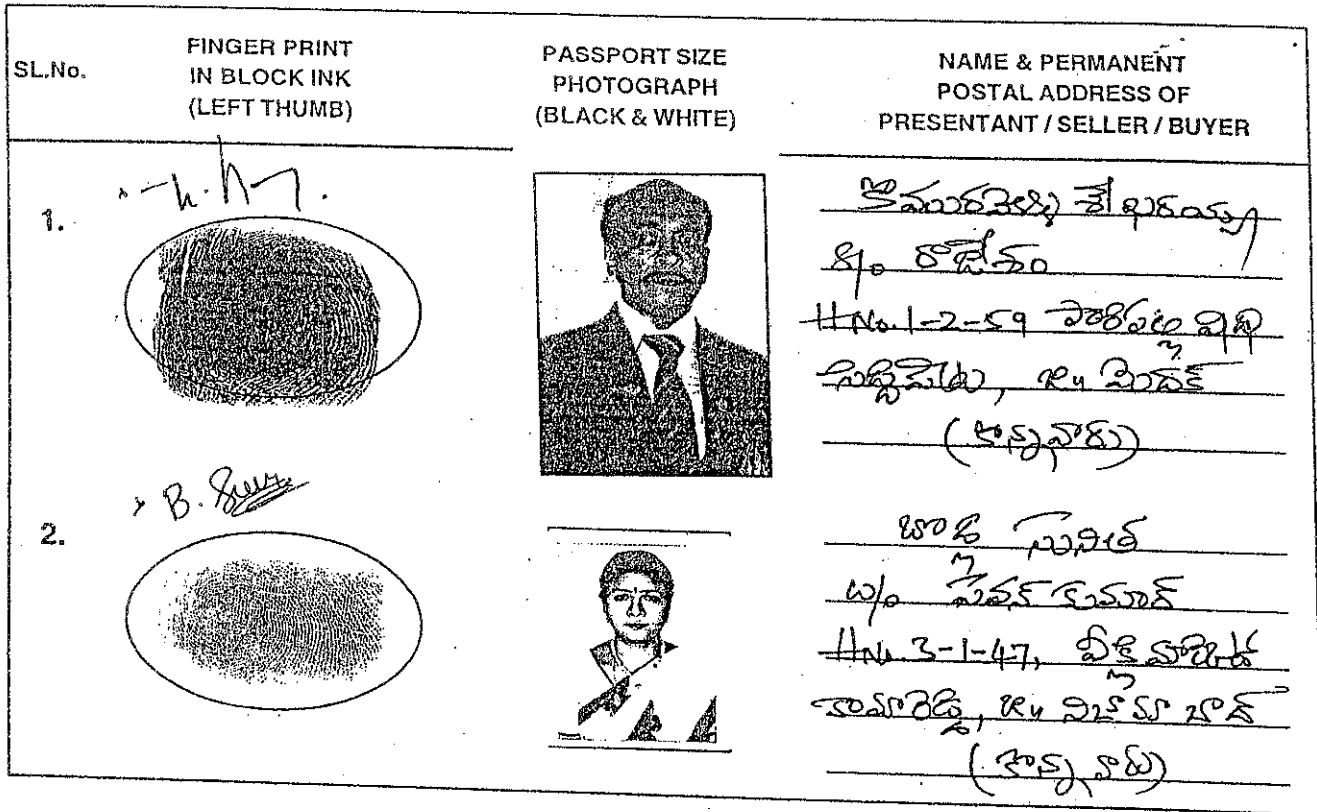 SL.No.
FINGER PRINT
IN BLOCK INK
(LEFT THUMB)
PASSPORT SIZE
PHOTOGRAPH
(BLACK & WHITE)
NAME & PERMANENT
POSTAL ADDRESS OF
PRESENTANT / SELLER / BUYER
1.
కొమురవెల్లి శేఖరయ్య
S/o రాజేశం
H No. 1-2-59
సిద్దిపేట, మెదక్
(కొన్నవారు)
2.
B.
సునీత
w/o పవన్ కుమార్
H No. 3-1-47,
కామారెడ్డి, నిజామాబాద్
(కొన్నవారు)